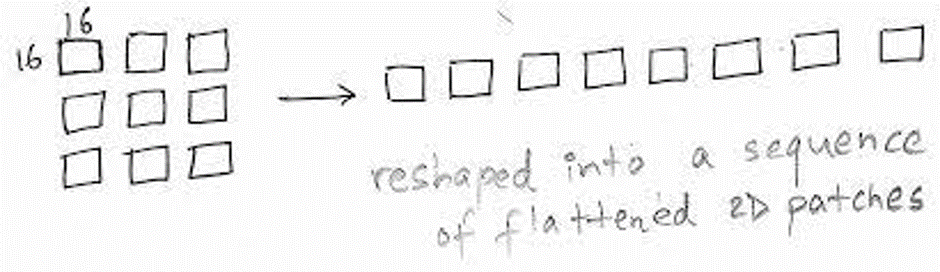 16
16
reshaped into a sequence
of flattened 2D patches